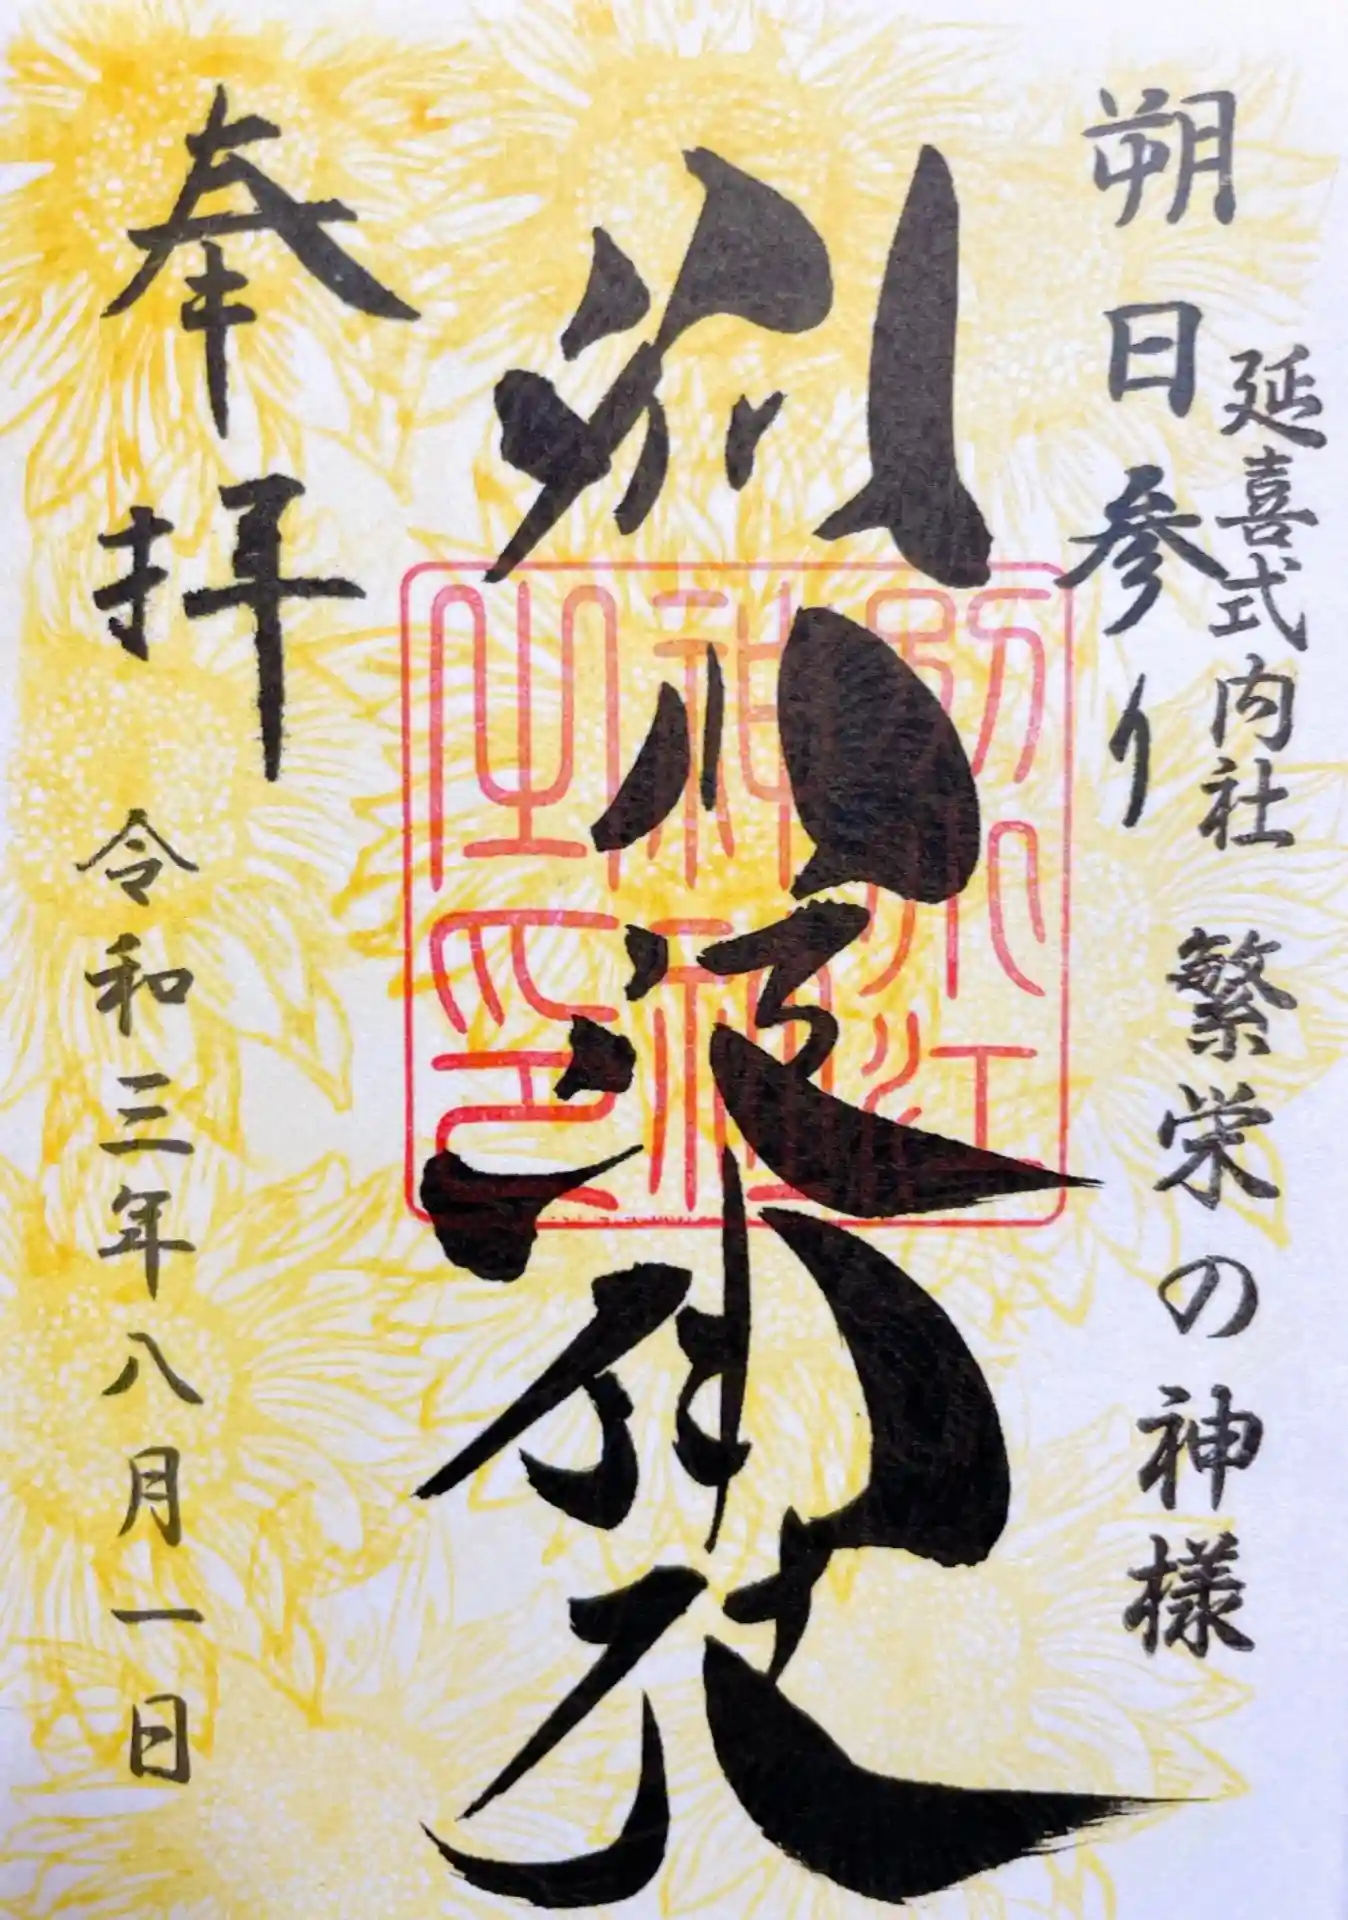 朔日参り
延喜式内社
繁栄の神様
別小江神社
別小江
神社
之印
奉拝
令和三年八月一日